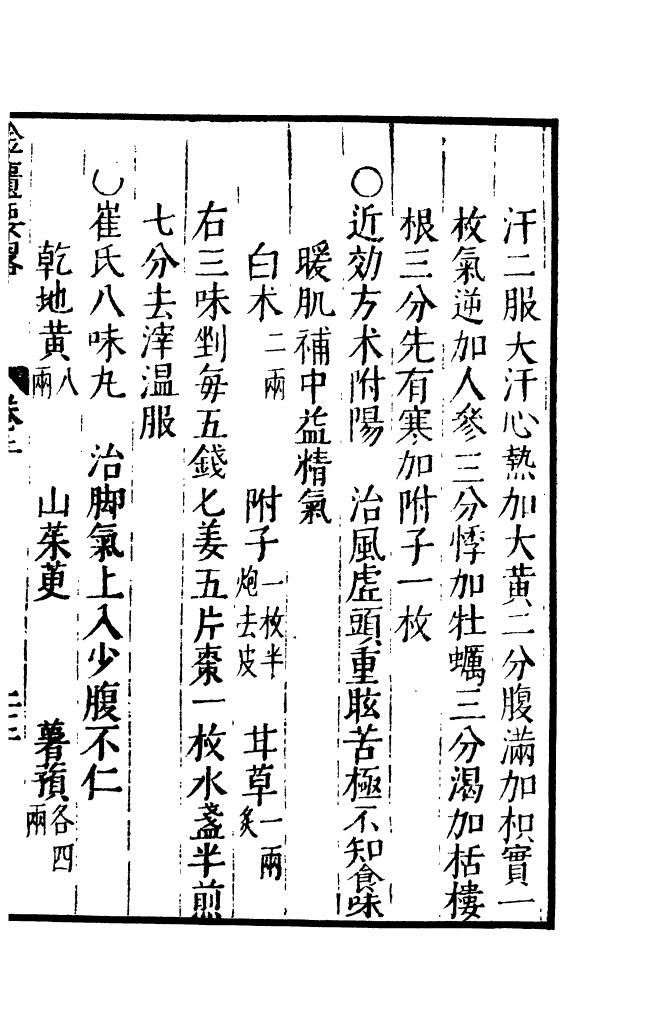 汗二服大汗心熱加大黃二分腹滿加枳實一
枚氣逆加人參三分悸加牡蠣三分渴加栝樓
根三分先有寒加附子一枚
○近効方术附陽　治風虛頭重眩苦極不知食味
暖肌補中益精氣
白术二兩　附子一枚半炮去皮　甘草一兩炙
右三味剉每五錢匕姜五片棗一枚水盞半煎
七分去滓温服
○崔氏八味丸　治脚氣上入少腹不仁
乾地黃八兩　山茱萸　薯蕷各四兩
金匱要略　卷上